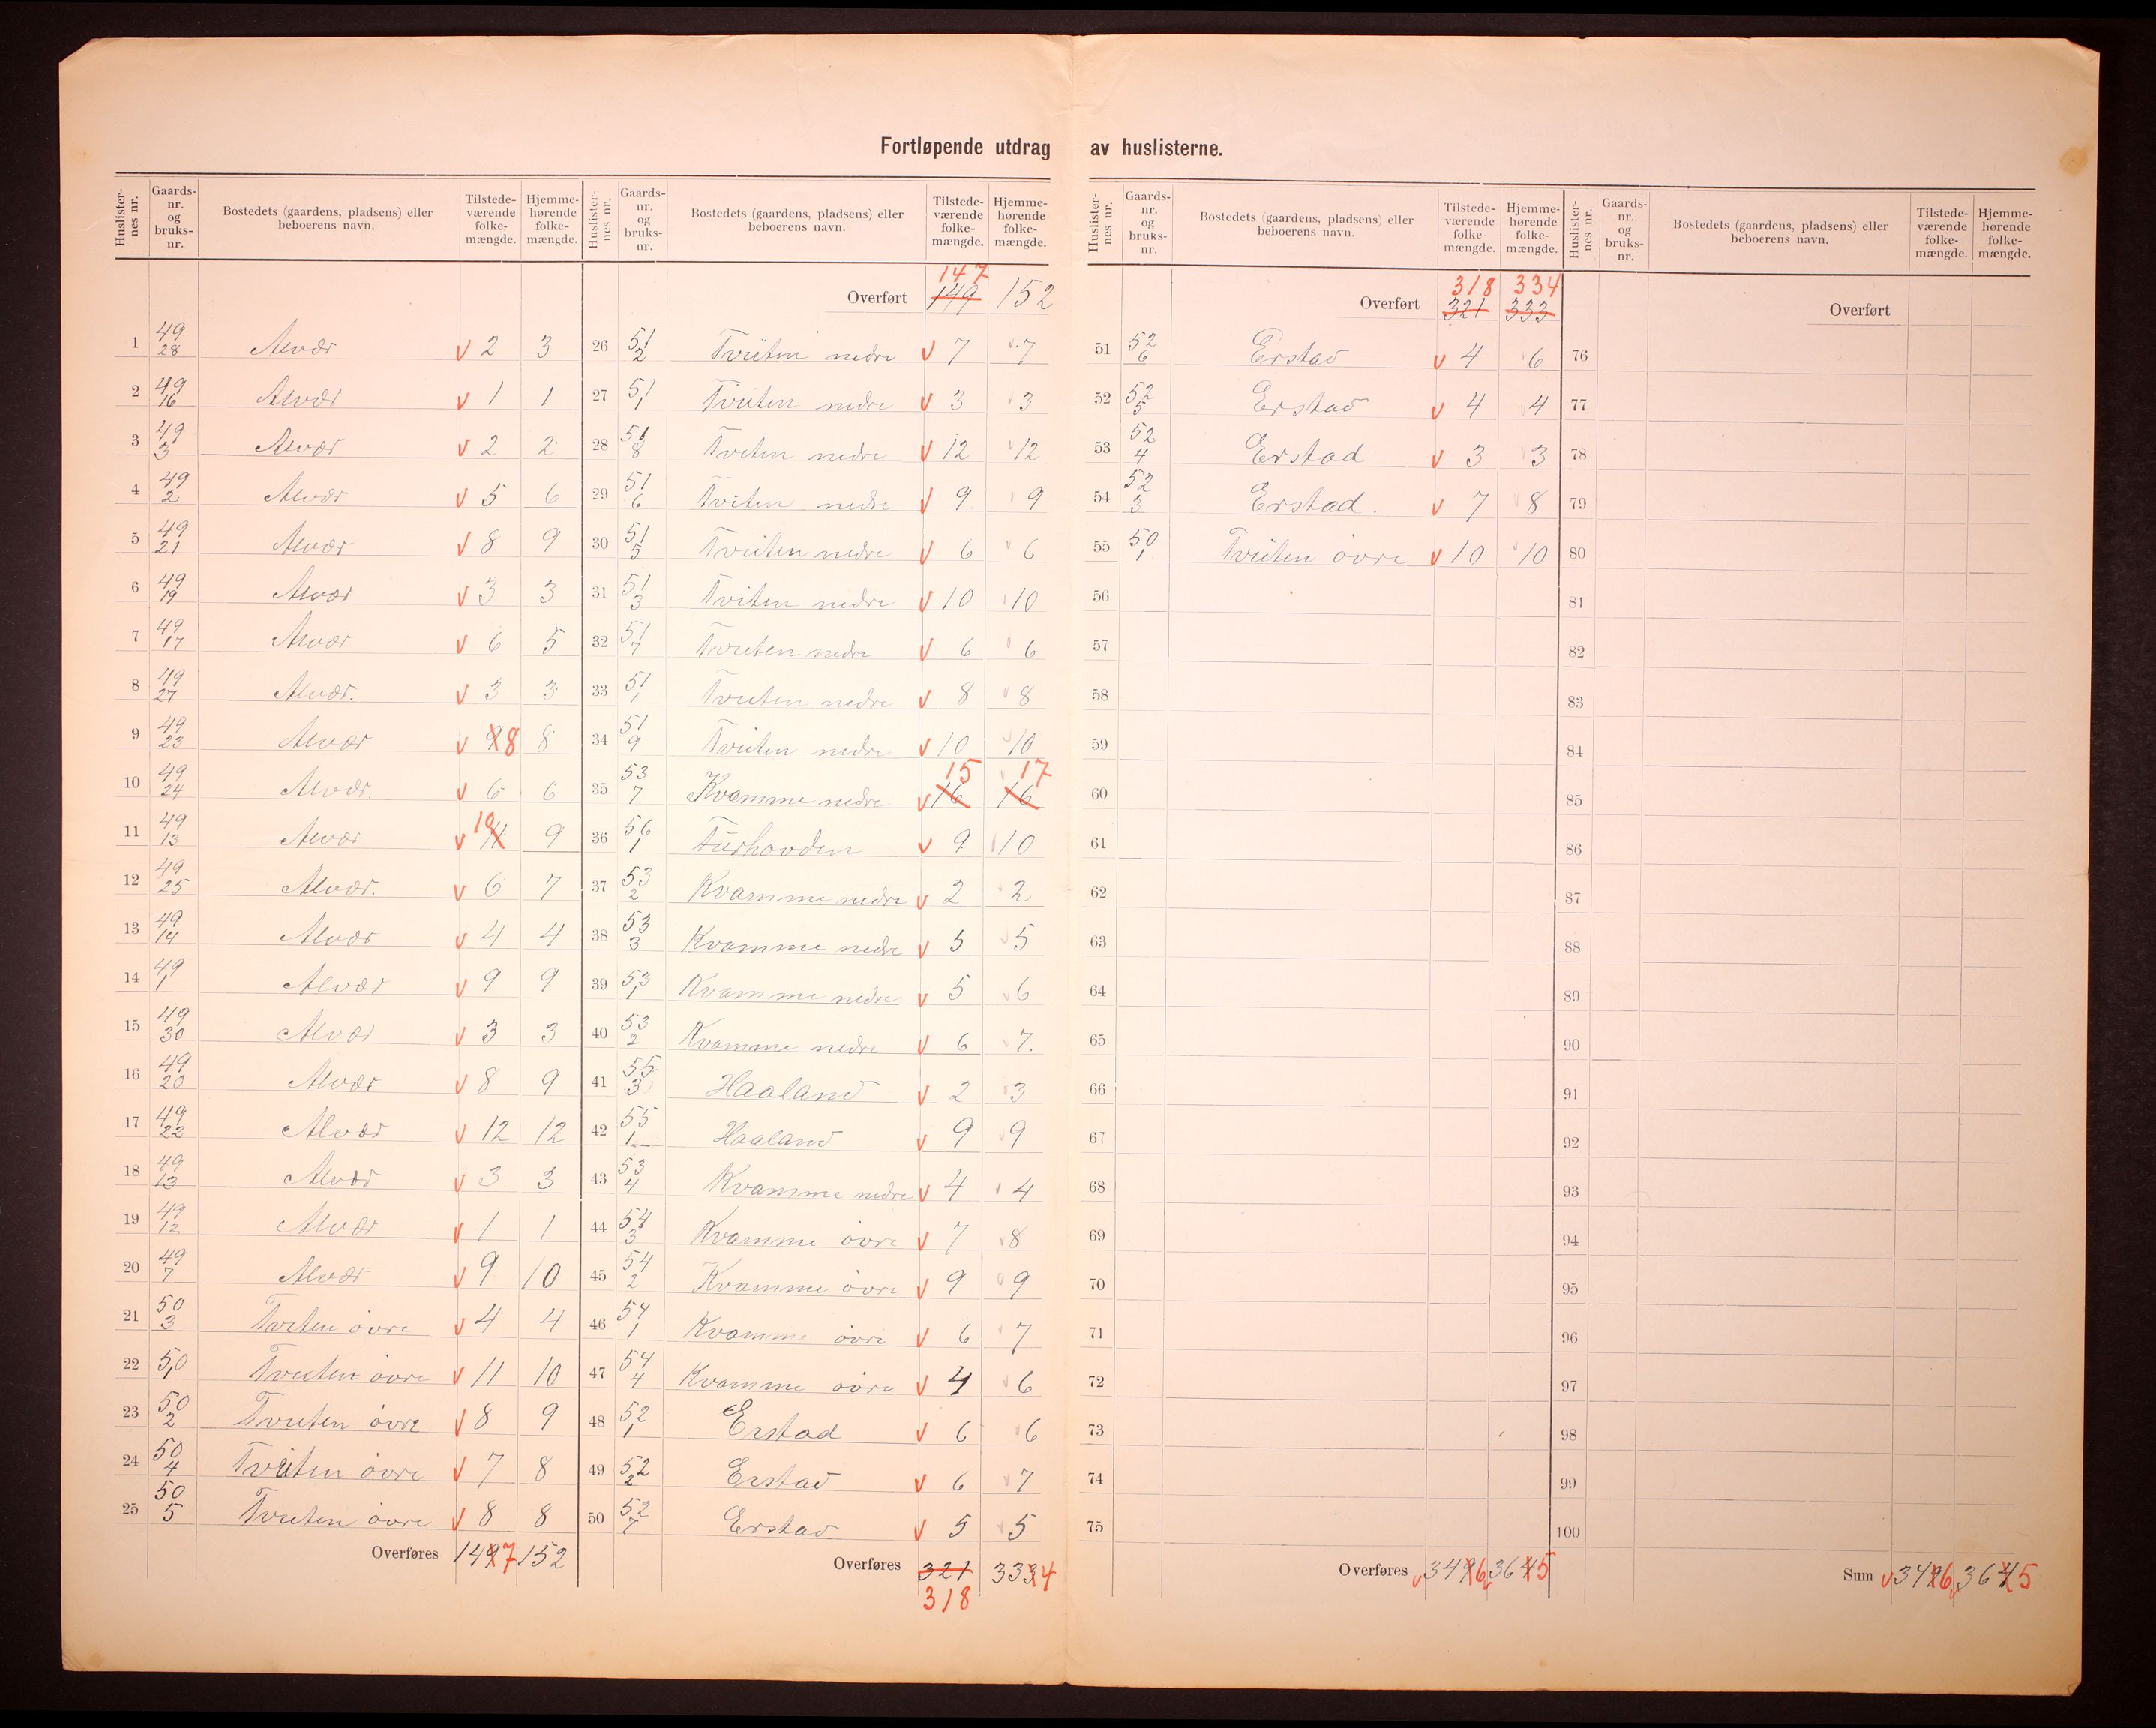 Fortløpende utdrag av huslisterne.
Huslister-nes nr. Gaards-nr. og bruks-nr. Bostedets (gaardens, pladsens) eller beboerens navn. Tilstede-værende folke-mængde. Hjemme-hørende folke-mængde.
1 49/28 Alvær v 2 3
2 49/16 Alvær v 1 1
3 49/3 Alvær v 2 2
4 49/2 Alvær v 5 6
5 49/21 Alvær v 8 9
6 49/19 Alvær v 3 3
7 49/17 Alvær v 6 5
8 49/27 Alvær. v 3 3
9 49/23 Alvær v 9 8 8
10 49/24 Alvær. v 6 6
11 49/13 Alvær v 11 10 9
12 49/25 Alvær. v 6 7
13 49/14 Alvær v 4 4
14 49/1 Alvær v 9 9
15 49/30 Alvær v 3 3
16 49/20 Alvær v 8 9
17 49/22 Alvær v 12 12
18 49/13 Alvær v 3 3
19 49/12 Alvær v 1 1
20 49/7 Alvær v 9 10
21 50/3 Tveten övre v 4 4
22 50/1 Tveiten övre v 11 10
23 50/2 Tveiten övre v 8 9
24 50/4 Tveiten övre v 7 8
25 50/5 Tveiten övre v 8 8
Overføres 149 7 152
Huslister-nes nr. Gaards-nr. og bruks-nr. Bostedets (gaardens, pladsens) eller beboerens navn. Tilstede-værende folke-mængde. Hjemme-hørende folke-mængde.
147
Overført 149 152
26 51/2 Tveiten nedre v 7 v 7
27 51/1 Tveiten nedre v 3 v 3
28 51/8 Tveten nedre v 12 v 12
29 51/6 Tveiten nedre v 9 v 9
30 51/5 Tveiten nedre v 6 v 6
31 51/3 Tveiten nedre v 10 v 10
32 51/7 Tveiten nedre v 6 v 6
33 51/1 Tveiten nedre v 8 v 8
34 51/9 Tveiten nedre v 10 v 10
15 17
35 53/7 Kvamme nedre v 16 16
36 56/1 Furhovden v 9 v 10
37 53/2 Kvamme nedre v 2 v 2
38 53/3 Kvamme nedre v 5 v 5
39 53/1 Kvamme nedre v 5 v 6
40 53/2 Kvamme nedre v 6 v 7.
41 55/3 Haaland v 2 v 3
42 55/1 Haaland v 9 v 9
43 53/4 Kvamme nedre v 4 v 4
44 54/3 Kvamme övre v 7 v 8
45 54/2 Kvamme övre v 9 v 9
46 54/1 Kvamme övre v 6 v 7
47 54/4 Kvamme övre v 4 v 6
48 52/1 Erstad v 6 v 6
49 52/2 Erstad v 6 v 7
50 52/7 Erstad v 5 v 5
Overføres 321 333 4
318
Huslister-nes nr. Gaards-nr. og bruks-nr. Bostedets (gaardens, pladsens) eller beboerens navn. Tilstede-værende folke-mængde. Hjemme-hørende folke-mængde.
318 334
Overført 321 333
51 52/6 Erstad v 4 v 6
52 52/5 Erstad v 4 v 4
53 52/4 Erstad v 3 v 3
54 52/3 Erstad. v 7 v 8
55 50/1 Tveiten övre v 10 v 10
56
57
58
59
60
61
62
63
64
65
66
67
68
69
70
71
72
73
74
75
Overføres v 349 6 v 364 5
Huslister-nes nr. Gaards-nr. og bruks-nr. Bostedets (gaardens, pladsens) eller beboerens navn. Tilstede-værende folke-mængde. Hjemme-hørende folke-mængde.
Overført
76
77
78
79
80
81
82
83
84
85
86
87
88
89
90
91
92
93
94
95
96
97
98
99
100
Sum v 349 6 v 364 5